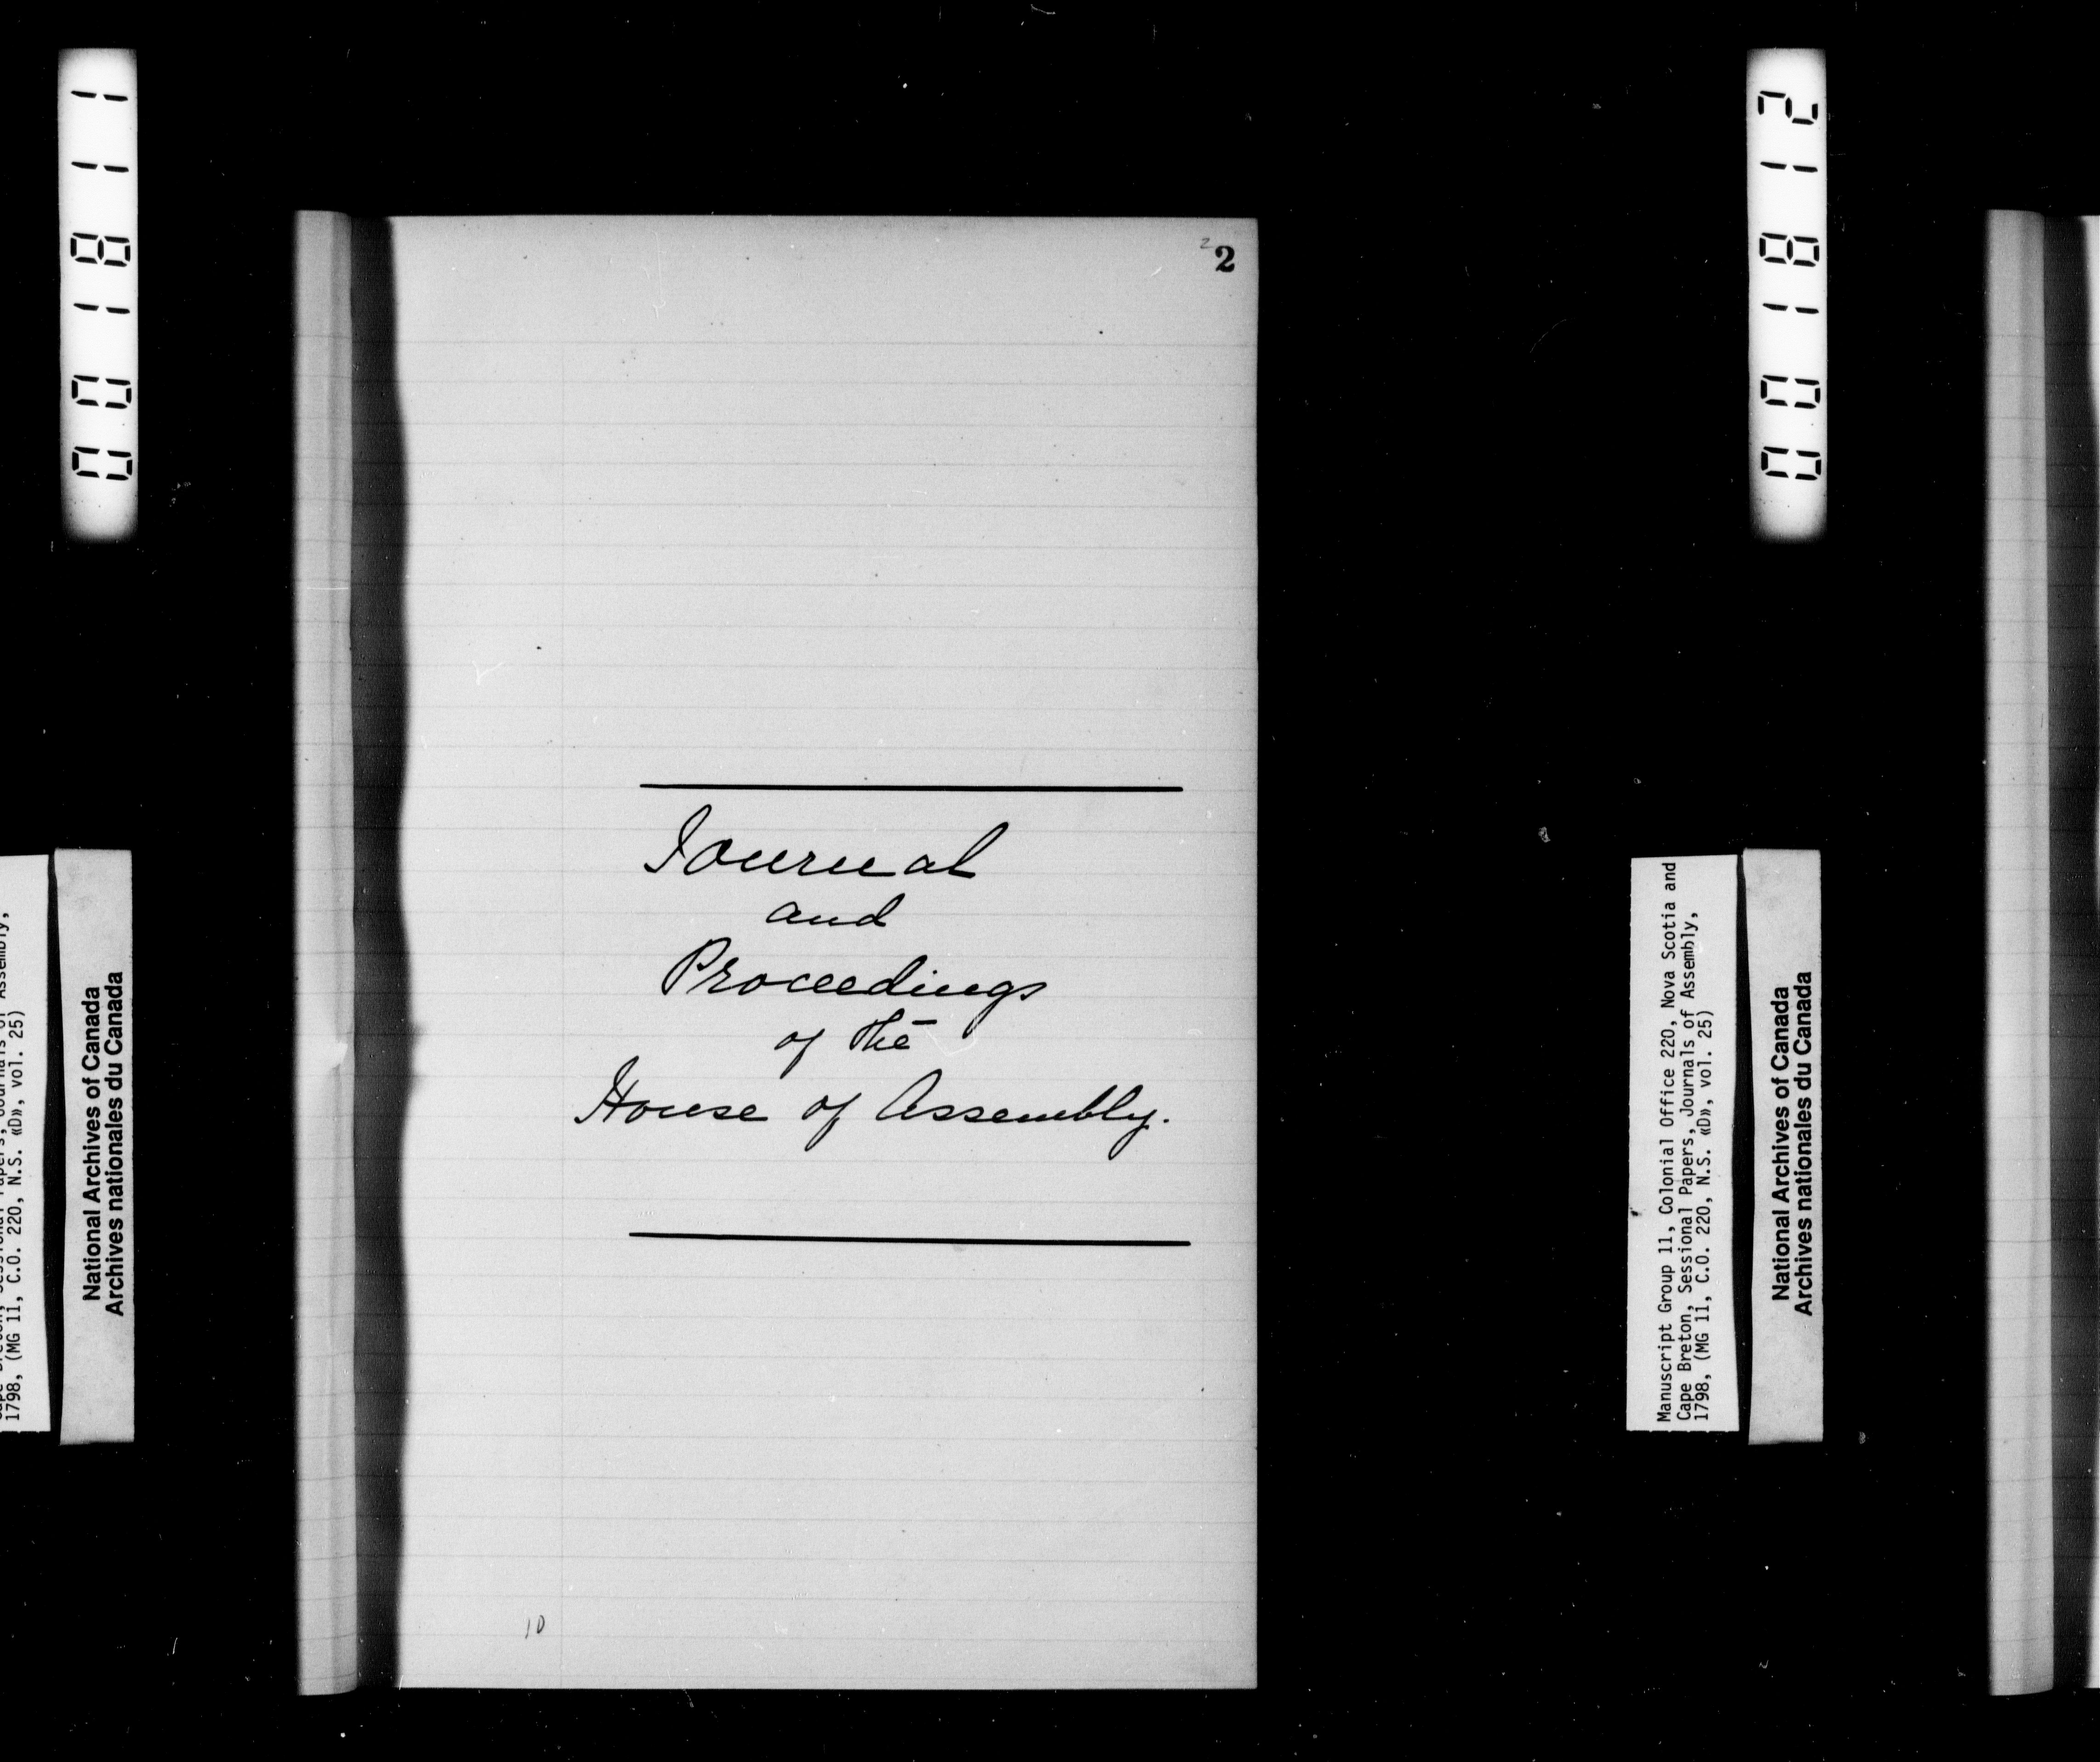 001811
Assembly,
1798, (MG 11, C.O. 220, N.S. «D», vol. 25)
National Archives of Canada
Archives nationales du Canada
2
2
Journal
and
Proceedings
of the
House of Assembly.
10
001812
Manuscript Group 11, Colonial Office 220, Nova Scotia and
Cape Breton, Sessional Papers, Journals of Assembly,
1798, (MG 11, C.O. 220, N.S. «D», vol. 25)
National Archives of Canada
Archives nationales du Canada